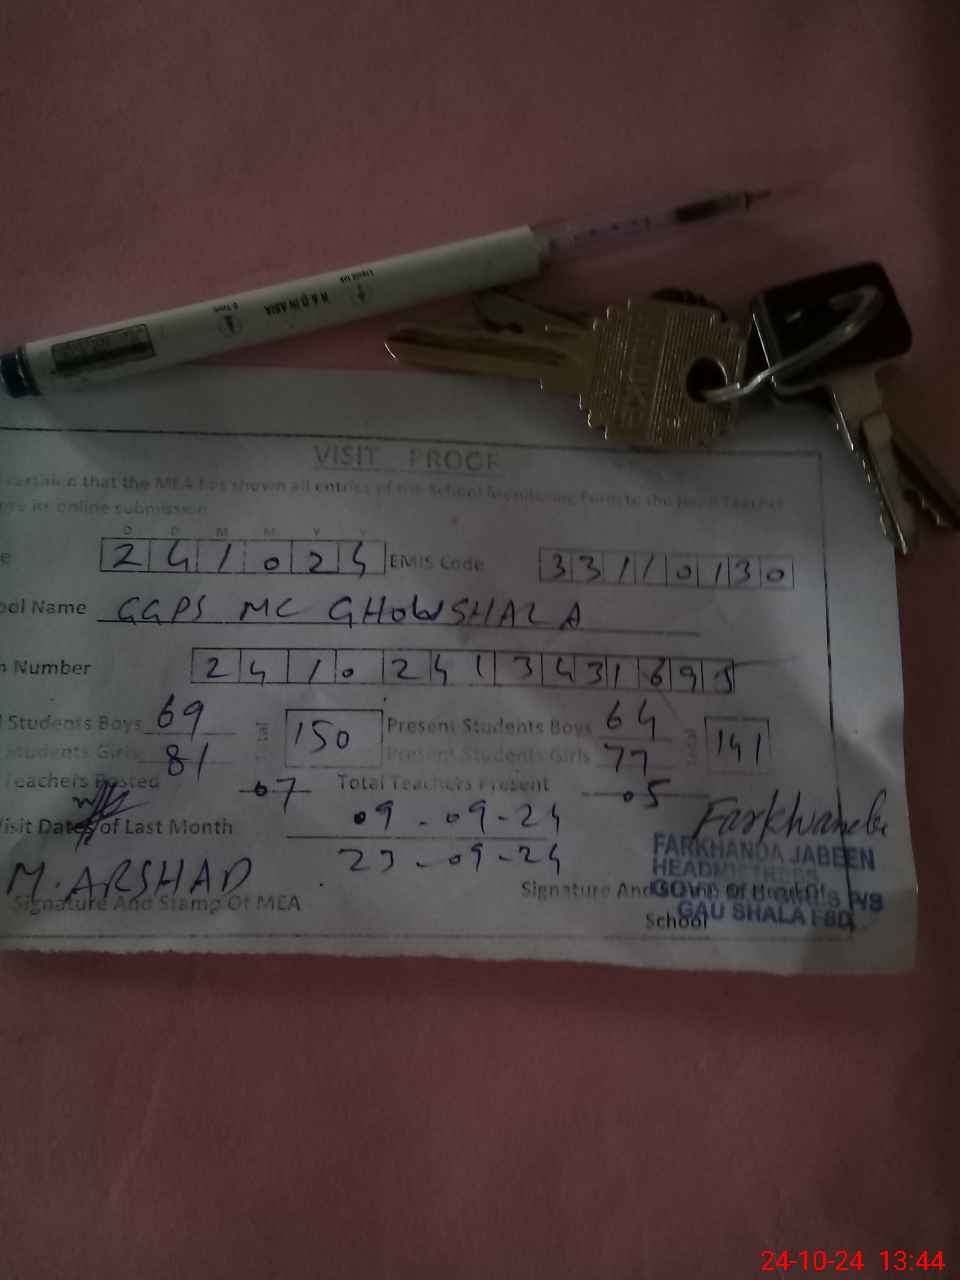 Liquid Ink
0.7mm
VISIT PROOF
certain that the MEA has shown all entries of the School Monitoring Form to the Head Teacher
its online submission
D D M M Y Y
e 241024 EMIS Code 33110130
ool Name GGPS MC GHOWSHALA
n Number 2410241343169
Students Boys 69 Total 150 Present Students Boys 64 Total 141
Students Girls 81 Present Students Girls 77
Teachers Posted 07 Total Teachers Present 05
isit Dates of Last Month 09-09-24
23-09-24
M. ARSHAD
Signature And Stamp Of MEA
Farkhanda
FARKHANDA JABEEN
HEADMISTRESS
GAU SHALA FBD
Signature And
School
24-10-24 13:44